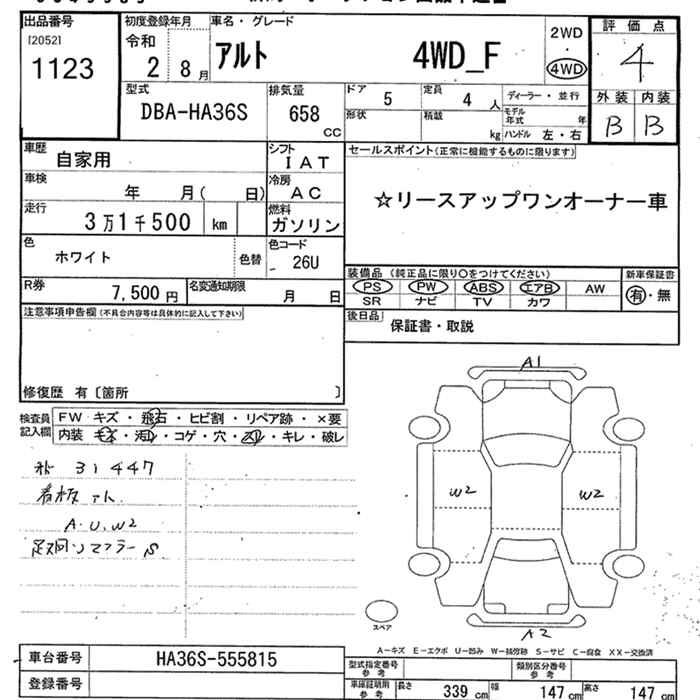 出品番号
[2052]
1123
初度登録年月
令和
2 8月
車名・グレード
アルト 4WD_F
2WD
・
4WD
評価点
4
外装 内装
B B
型式
DBA-HA36S
排気量
658
CC
ドア
5
定員
4 人
ディーラー・並行
形状
積載
kg
モデル年式 年
ハンドル 左・右
車歴
自家用
シフト
IAT
セールスポイント(正常に機能するものに限ります)
☆リースアップワンオーナー車
車検
年 月( 日)
冷房
AC
走行
3万1千500 km
燃料
ガソリン
色
ホワイト
色替
色コード
26U
R券
7,500円
名変通知期限
月 日
装備品(純正品に限り○をつけてください)
PS PW ABS エアB AW
SR ナビ TV カワ
新車保証書
有・無
後日品
保証書・取説
注意事項申告欄(不具合内容等は具体的に記入して下さい)
修復歴 有〔箇所 〕
検査員記入欄
FW キズ・飛石・ヒビ割・リペア跡・×要
内装 キズ・汚れ・コゲ・穴・スレ・キレ・破レ
31447
A.U.W2
A1
W2 W2
A2
スペア
A-キズ E-エクボ U-凹み W-補修跡 S-サビ C-腐食 XX-交換済
車台番号
HA36S-555815
登録番号
型式指定番号
参考
類別区分番号
参考
車庫証明用
参考
長さ 339cm 幅 147cm 高さ 147cm